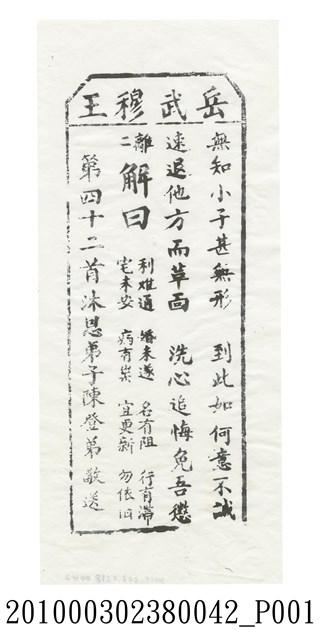 岳武穆王
無知小子甚無形 到此如何意不誠
速退他方而革面 洗心追悔免吾懲
離二
解曰
利难通 婚未遂 名有阻 行有滯
宅未安 病有祟 宜更新 勿依旧
第四十二首沐恩弟子陳登弟敬送
201000302380042_P001